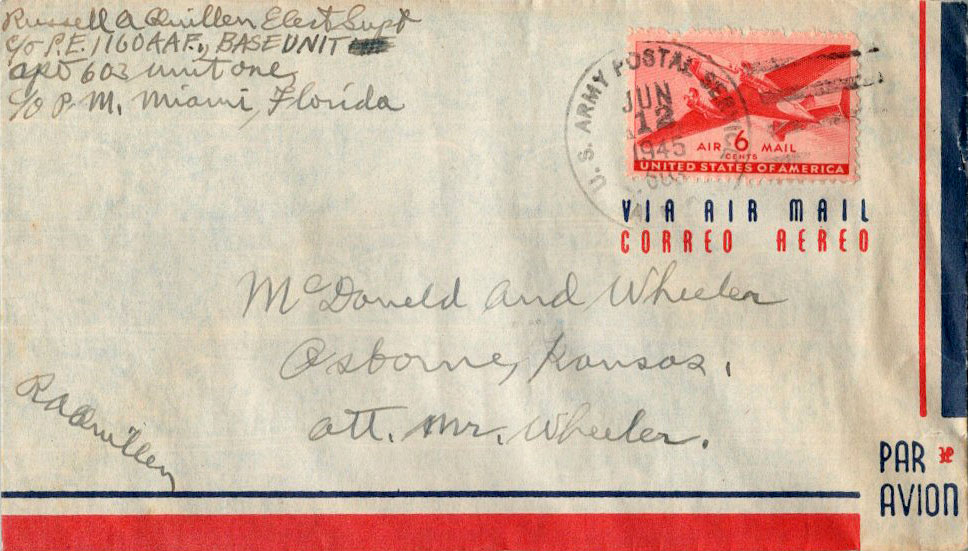 Russell A Quillen Elect Supt
c/o P.E. 1160 AAF., BASE UNIT
APO 603 Unit one
c/o P.M. Miami, Florida
U.S. ARMY POSTAL SERVICE
JUN
12
1945
AIR 6 MAIL
CENTS
UNITED STATES OF AMERICA
VIA AIR MAIL
CORREO AEREO
McDoneld and Wheeler
Osborne, Kansas.
att. Mr. Wheeler.
RAQuillen
PAR
AVION